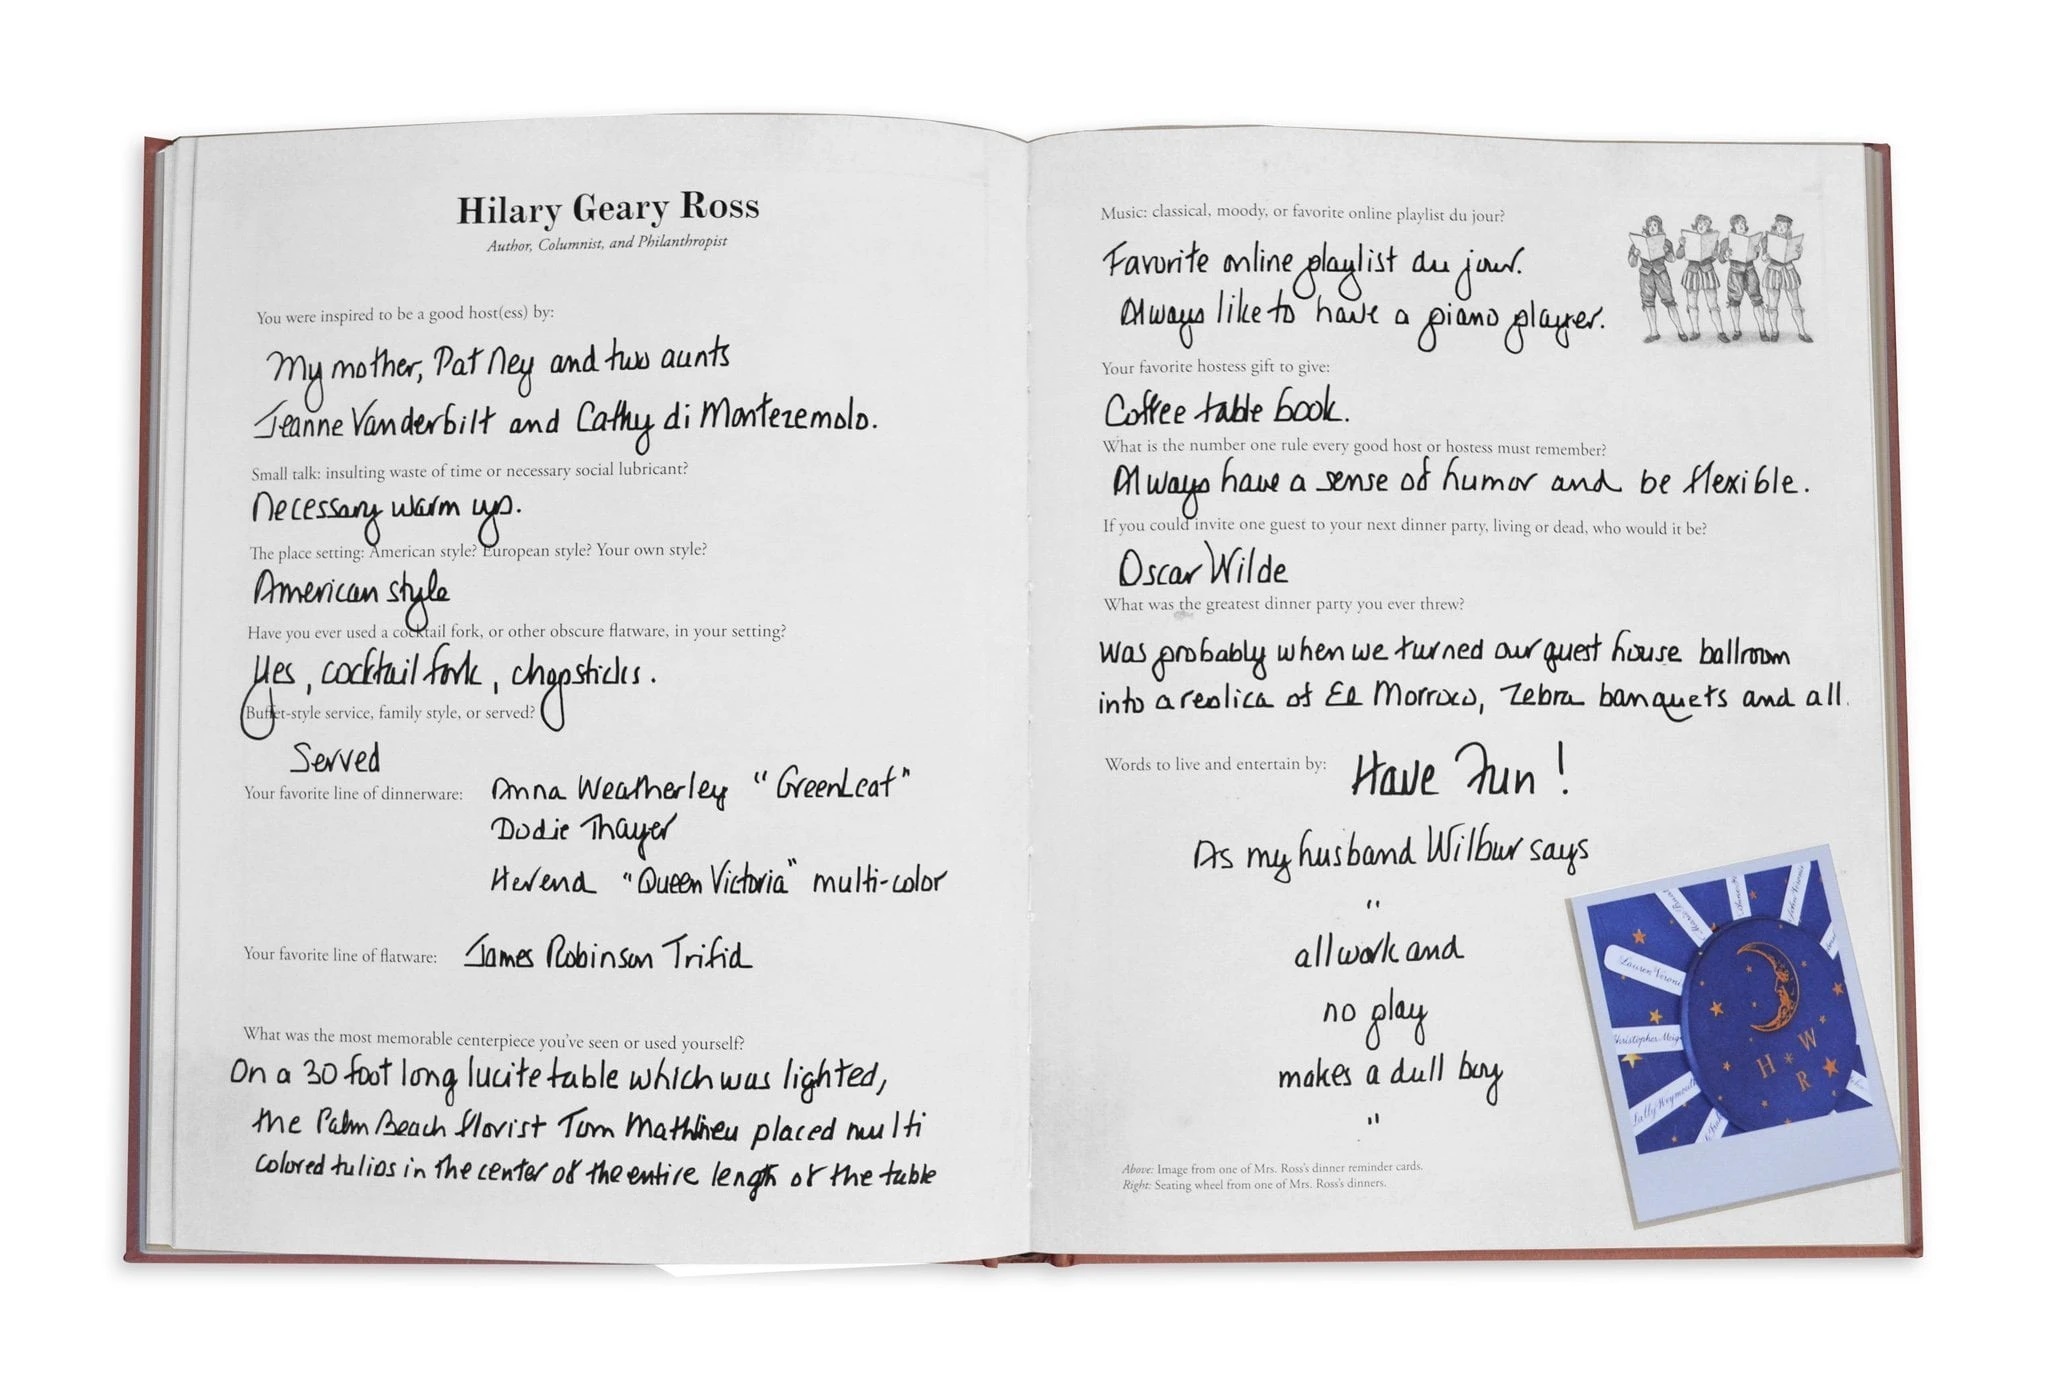 Hilary Geary Ross
Author, Columnist, and Philanthropist
You were inspired to be a good host(ess) by:
My mother, Pat Ney and two aunts
Jeanne Vanderbilt and Cathy di Montezemolo.
Small talk: insulting waste of time or necessary social lubricant?
Necessary warm ups.
The place setting: American style? European style? Your own style?
American style
Have you ever used a cocktail fork, or other obscure flatware, in your setting?
Yes, cocktail fork, chopsticks.
Buffet-style service, family style, or served?
Served
Your favorite line of dinnerware: Anna Weatherley "GreenLeaf"
Dodie Thayer
Herend "Queen Victoria" multi-color
Your favorite line of flatware: James Robinson Trifid
What was the most memorable centerpiece you've seen or used yourself?
On a 30 foot long lucite table which was lighted,
the Palm Beach florist Tom Mathieu placed multi
colored tulips in the center of the entire length of the table
Music: classical, moody, or favorite online playlist du jour?
Favorite online playlist du jour.
Always like to have a piano player.
Your favorite hostess gift to give:
Coffee table book.
What is the number one rule every good host or hostess must remember?
Always have a sense of humor and be flexible.
If you could invite one guest to your next dinner party, living or dead, who would it be?
Oscar Wilde
What was the greatest dinner party you ever threw?
Was probably when we turned our guest house ballroom
into a replica of El Morroco, Zebra banquets and all.
Words to live and entertain by: Have Fun!
As my husband Wilbur says
"
all work and
no play
makes a dull boy
"
Lauren Veroni
Christopher Meig
Sally Weymouth
H * W
R
Above: Image from one of Mrs. Ross's dinner reminder cards.
Right: Seating wheel from one of Mrs. Ross's dinners.